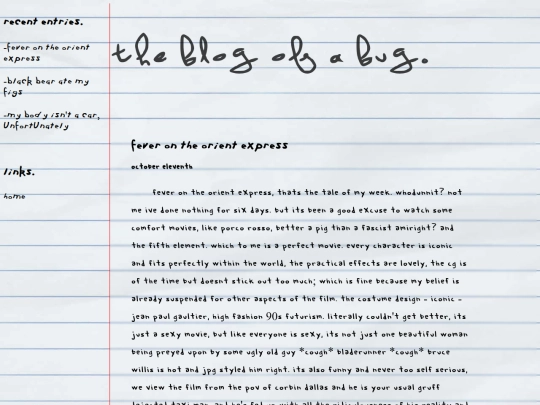 recent entries.
-fever on the orient
express
-black bear ate my
figs
-my body isn't a car,
UnfortUnately
links.
home
the blog of a bug.
fever on the orient express
october eleventh
fever on the orient express, thats the tale of my week. whodunnit? not
me ive done nothing for six days. but its been a good excuse to watch some
comfort movies, like porco rosso, better a pig than a fascist amiright? and
the fifth element. which to me is a perfect movie. every character is iconic
and fits perfectly within the world, the practical effects are lovely, the cg is
of the time but doesnt stick out too much; which is fine because my belief is
already suspended for other aspects of the film. the costume design - iconic -
jean paul gaultier, high fashion 90s futurism. literally couldn't get better, its
just a sexy movie, but like everyone is sexy, its not just one beautiful woman
being preyed upon by some ugly old guy *cough* bladerunner *cough* bruce
willis is hot and jpg styled him right. its also funny and never too self serious,
we view the film from the pov of corbin dallas and he is your usual gruff